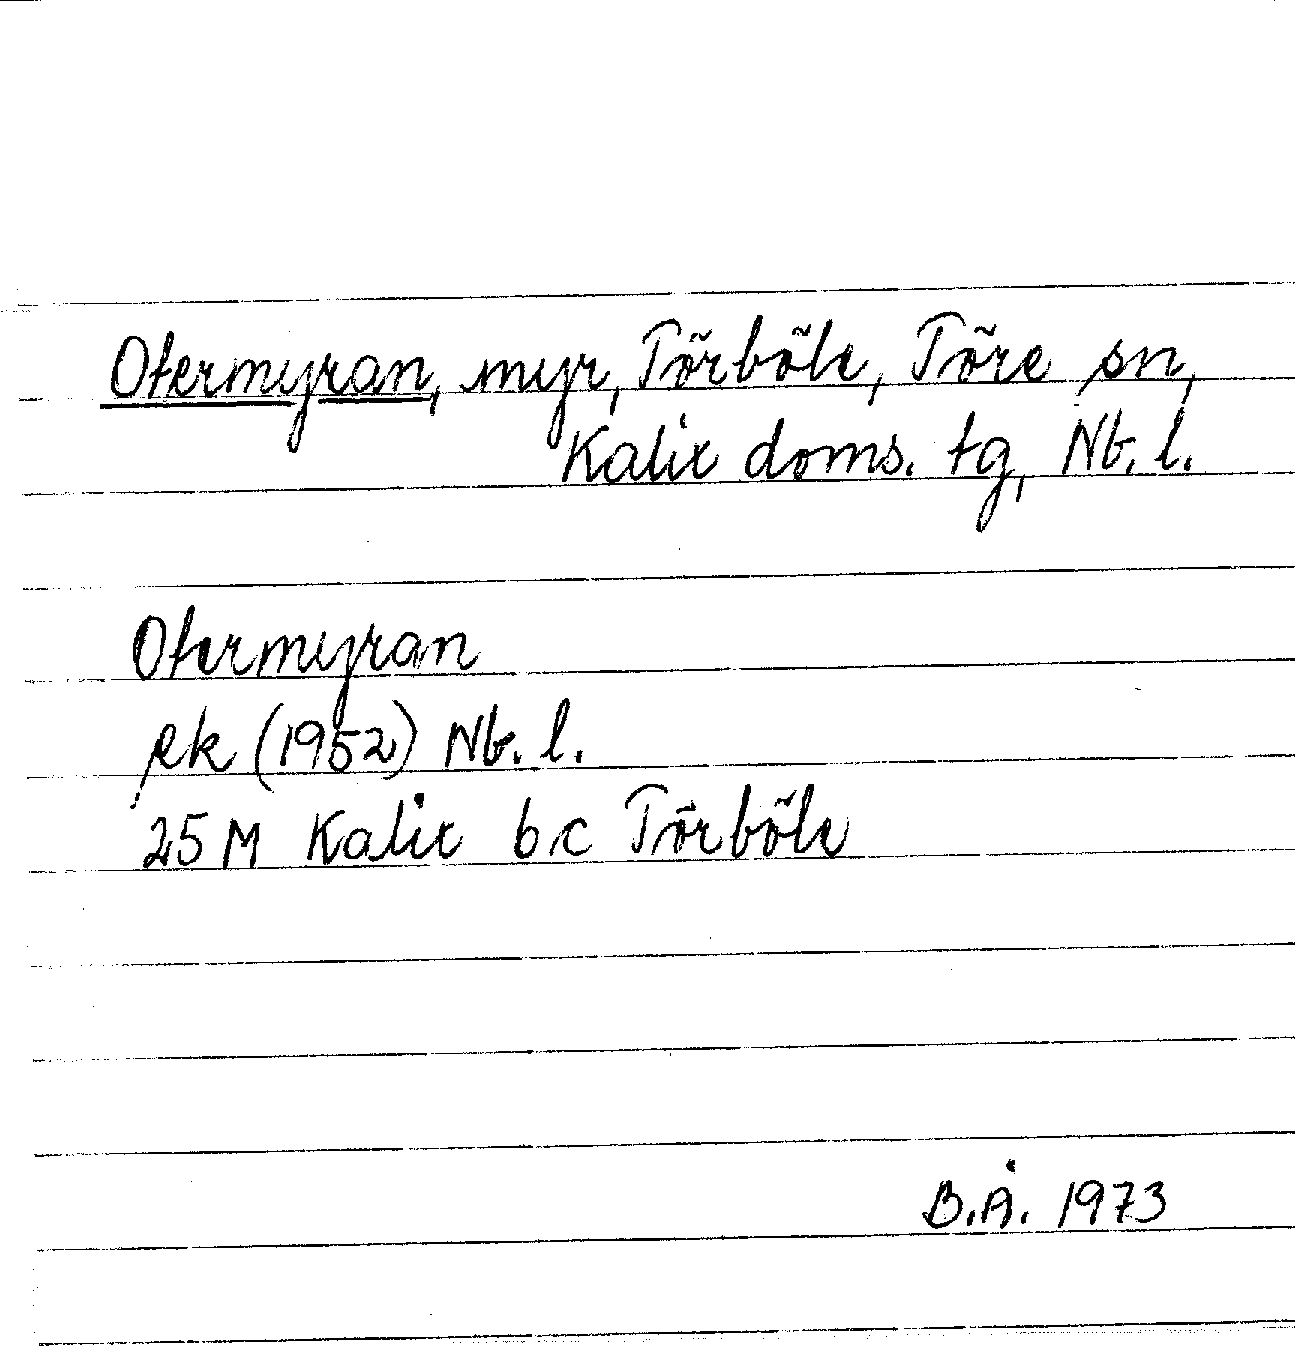 Otermyran, myr, Törböle, Töre sn,
Kalix doms. tg, Nb. l.
Otermyran
ek (1952) Nb. l.
25 M Kalix b c Törböle
B.Å. 1973